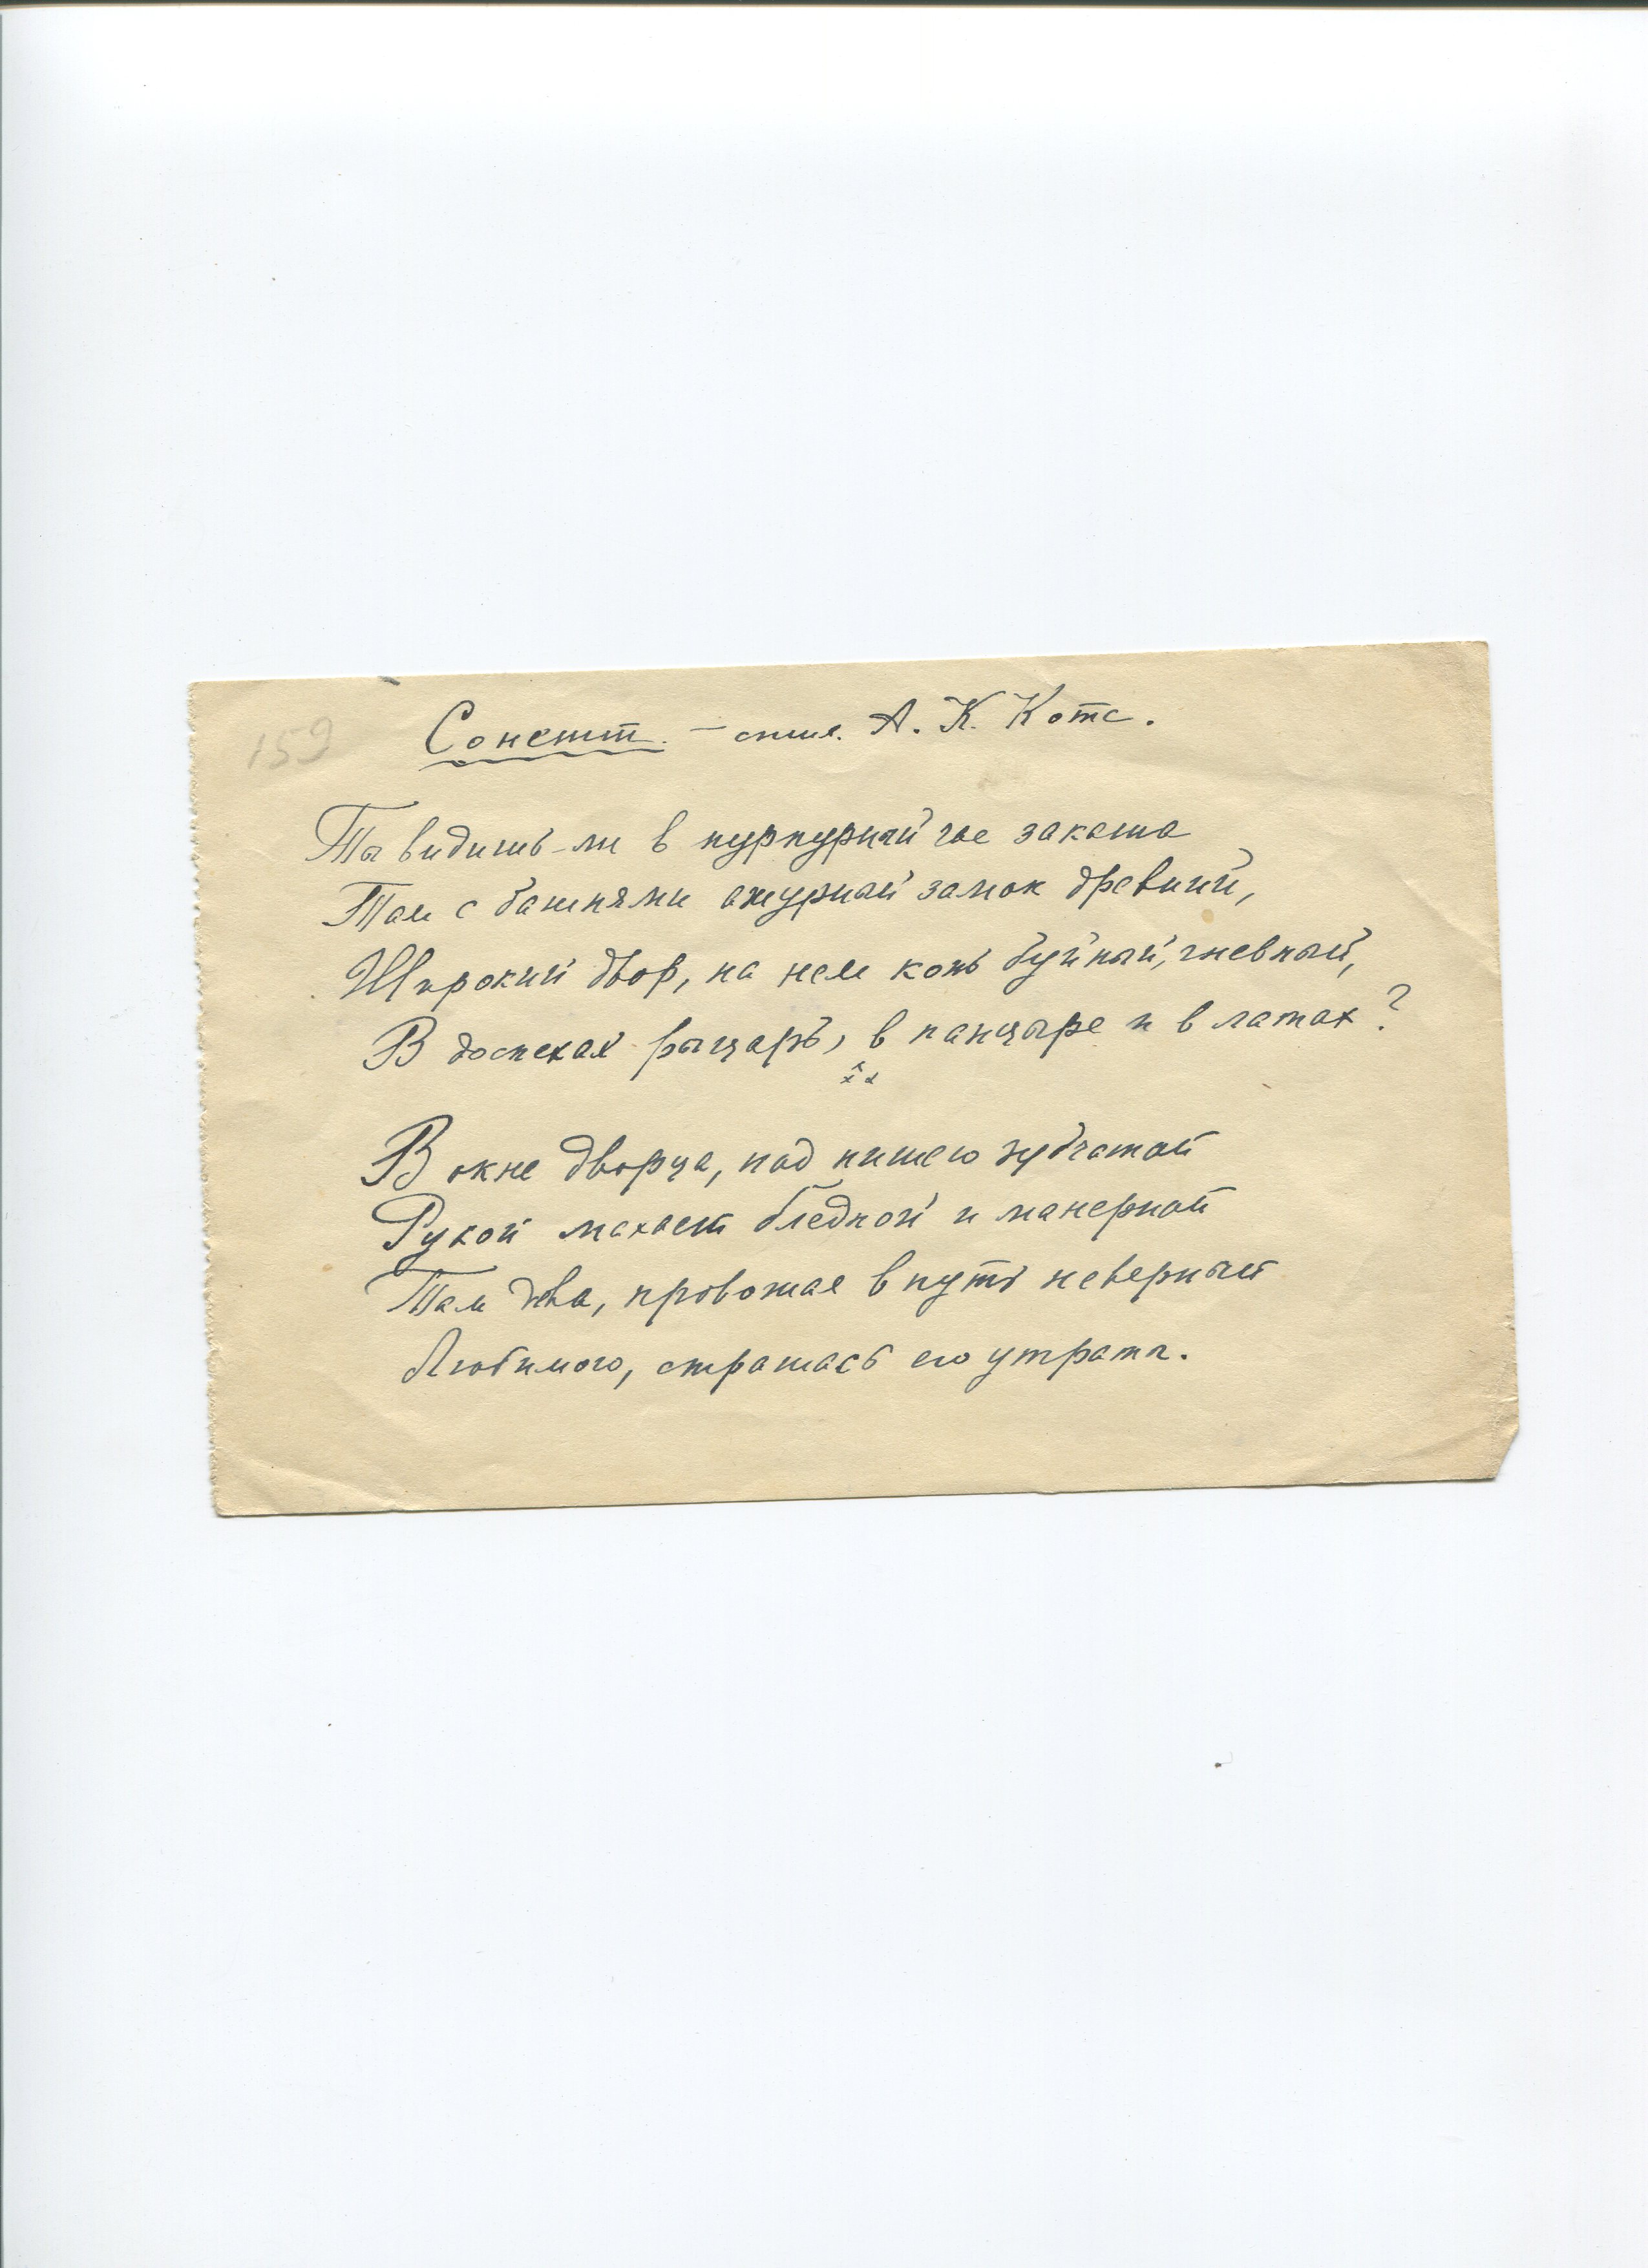 159
Сонетт. – стих. А. К. Котс.
Ты видишь-ли в пурпурный час заката
Там с башнями ажурный замок древний,
Широкий двор, на нем конь буйный, гневный,
В доспехах рыцарь, в панцыре и в латах?
В окне дворца, под нишею зубчатой
Рукой махает бледной и манерной
Там дева, провожая в путь неверный
Любимого, страшась его утраты.